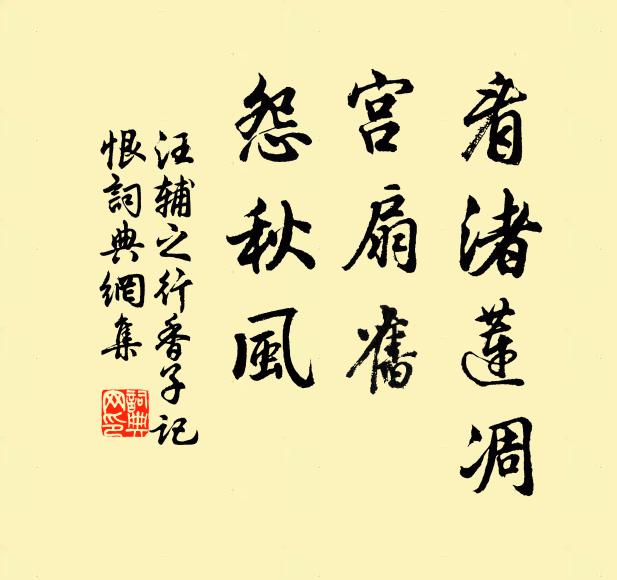 看渚蓮凋
宮扇舊
怨秋風
汪輔之行香子記
恨詞典網集
詞典
网印